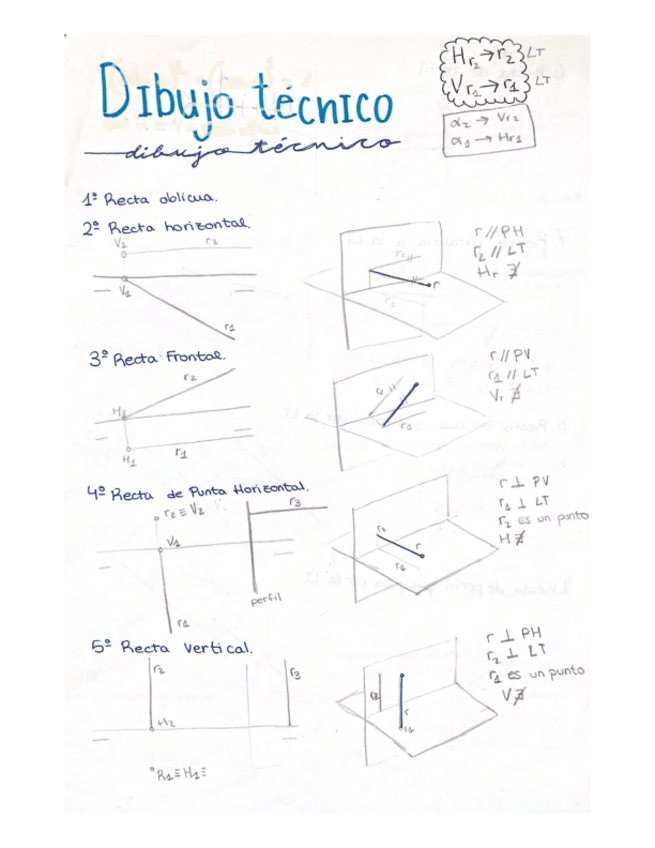 DIbujo técnico
dibujo técnico
Hr2 → r2 } LT
Vr1 → r1 } LT
α2 → Vr2
α1 → Hr1
1º Recta oblicua.
2º Recta horizontal.
V2 r2
V1
r1
r2 //
r
r1
r // PH
r2 // LT
Hr ∄
3º Recta Frontal.
r2
H2
H1 r1
r2 //
r1
r // PV
r1 // LT
Vr ∄
4º Recta de Punta Horizontal.
r2 ≡ V2
V1
r1
r3
perfil
r2
r
r1
r ⊥ PV
r1 ⊥ LT
r2 es un punto
H ∄
5º Recta Vertical.
r2
r3
H2
R1 ≡ H1 ≡
r2
r
r1
r ⊥ PH
r2 ⊥ LT
r1 es un punto
V ∄